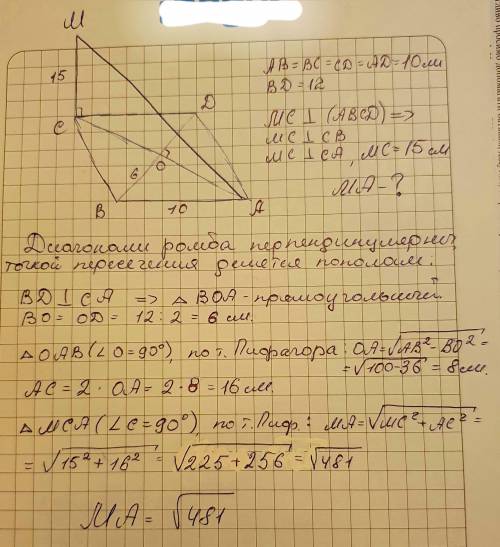 M
15
C
D
6
O
B
10
A
AB = BC = CD = AD = 10 см
BD = 12
MC ⊥ (ABCD) =>
MC ⊥ CB
MC ⊥ CA, MC = 15 см
MA - ?
Диагонали ромба перпендикулярны,
точкой пересечения делятся пополам:
BD ⊥ CA => △ BOA - прямоугольный.
BO = OD = 12 : 2 = 6 см.
△ OAB (∠O = 90°), по т. Пифагора: OA = √AB² - BO² =
= √100-36 = 8 см.
AC = 2 · OA = 2 · 8 = 16 см.
△ MCA (∠C = 90°) по т. Пиф.: MA = √MC² + AC² =
= √15² + 16² = √225 + 256 = √481
MA = √481